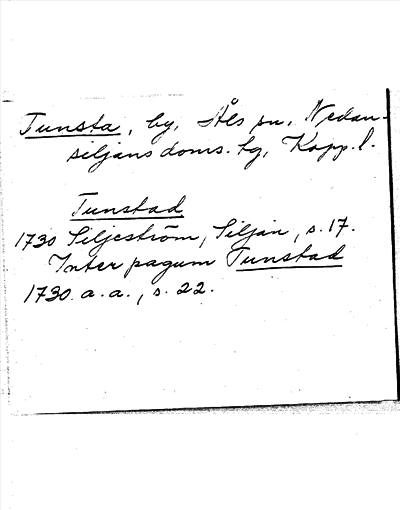 Tunsta, by, Åls sn, Nedan-
siljans doms. hg, Kopp. l.
Tunstad
1730 Siljeström, Siljan, s. 17.
Inter pagum Tunstad
1730. a. a., s. 22.